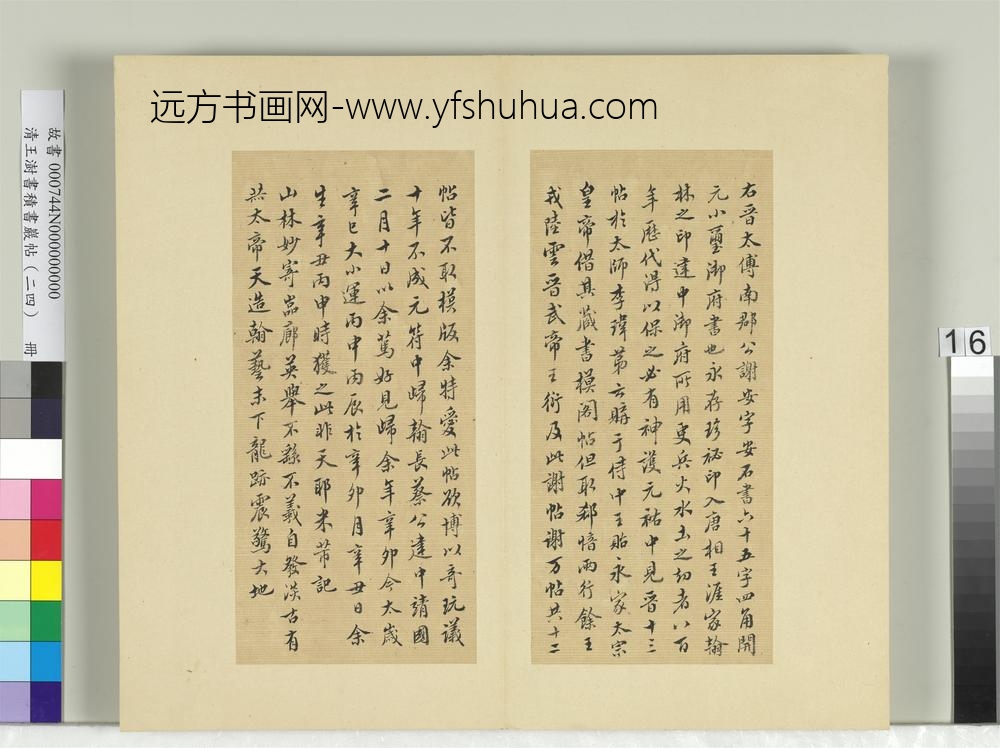 远方书画网-www.yfshuhua.com
右晋太傅南郡公謝安字安石書六十五字四角開
元小璽御府書也永存珍祕印入唐相王涯家翰
林之印建中御府所用更兵火水土之刧者八百
年歷代得以保之必有神護元祐中見晋十三
帖於太師李瑋第云購于侍中王貽永家太宗
皇帝借其藏書模閣帖但取郗愔兩行餘王
戎陸雲晋武帝王衍及此謝帖謝万帖共十二
帖皆不取模版余特愛此帖欲博以奇玩議
十年不成元符中歸翰長蔡公建中靖國
二月十日以余篤好見歸余年辛卯今太歲
辛巳大小運丙申丙辰於辛卯月辛丑日余
生辛丑丙申時獲之此非天耶米芾記
山林妙寄巖廊英舉不繇不義自發淡古有
赫太帝天造翰藝末下龍跡震驚大地
故書 000744N000000000
清王澍書積書巖帖（二四） 冊
16